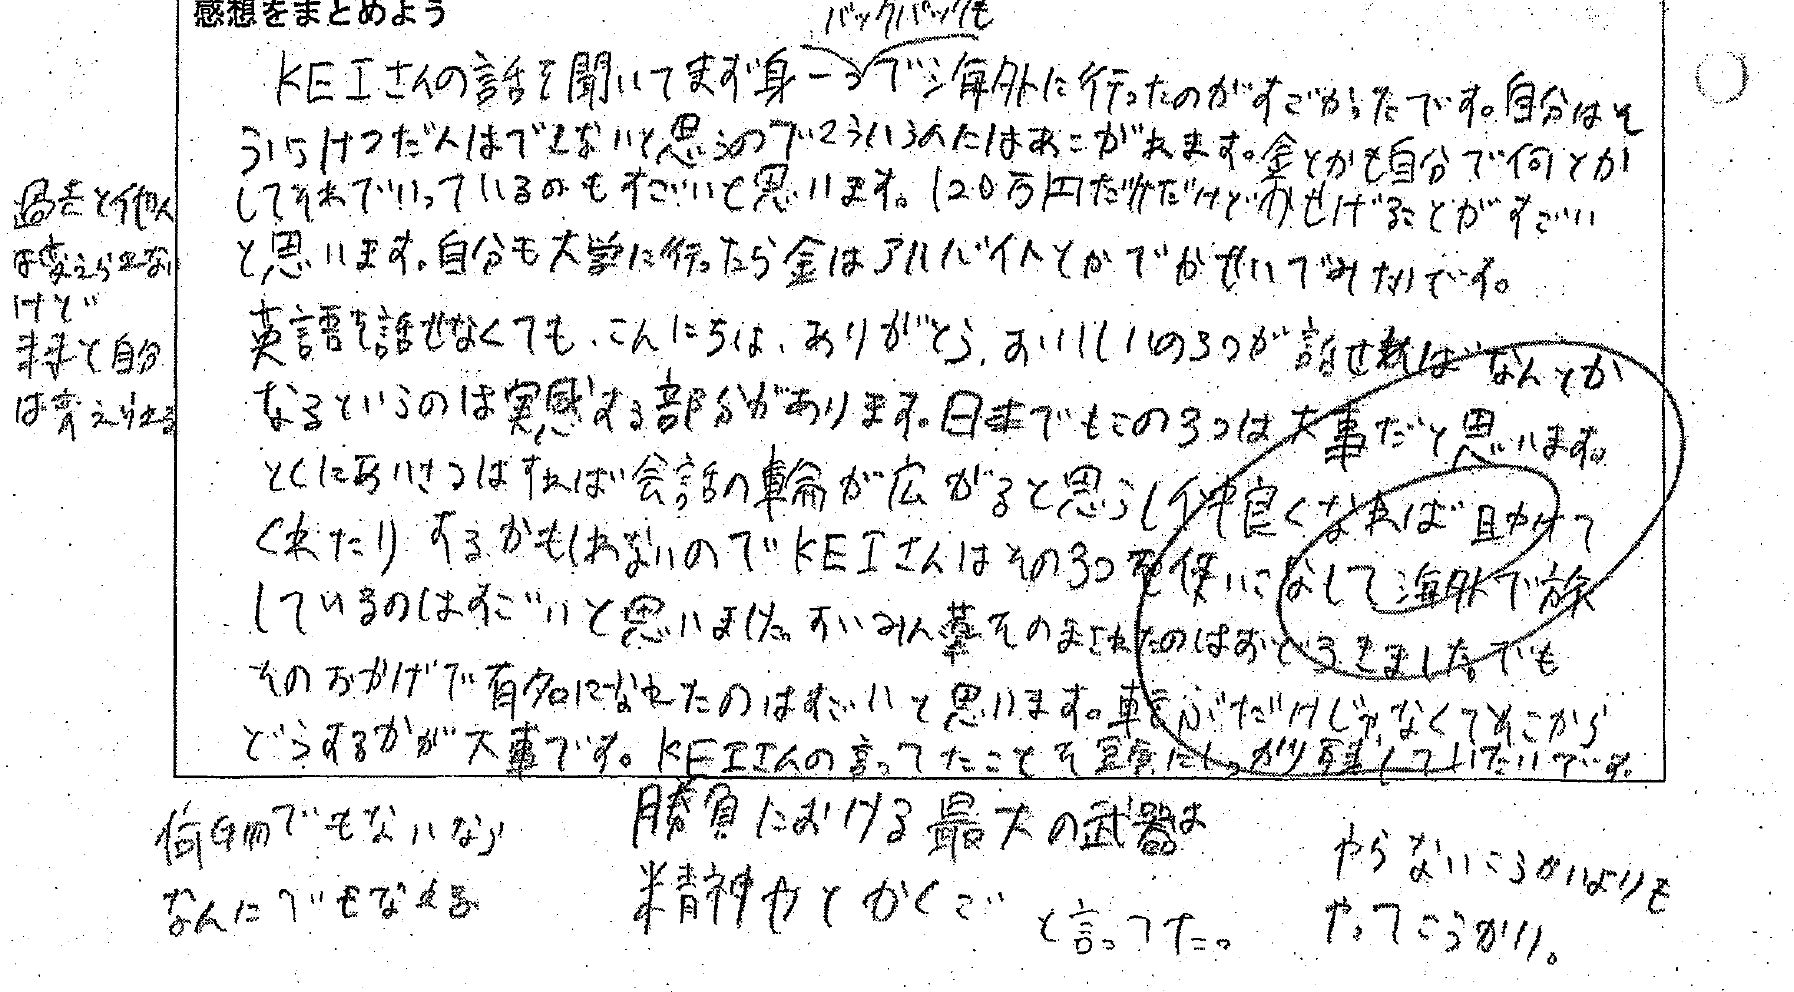 感想をまとめよう
バックパックも
KEIさんの話を聞いてまず身一つで海外に行ったのがすごかったです。自分はそ
ういうけつだんはできないと思うのでこういうのにはあこがれます。金とかも自分で何とか
してそれでいっているのもすごいと思います。120万円だけだけどかせげることがすごい
と思います。自分も大学に行ったら金はアルバイトとかでかせいでみたいです。
英語を話せなくても、こんにちは、ありがとう、おいしいの3つが話せればなんとか
なるというのは実感する部分があります。日本でもこの3つは大事だと思います。
とくにあいさつはすれば会話の輪が広がると思うし仲良くなれば助けて
くれたりするかもしれないのでKEIさんはその3つを使いこなして海外で旅
しているのはすごいと思いました。すいみん薬をのまされたのはおどろきましたでも
そのおかげで有名になれたのはすごいと思います。転ぶだけじゃなくてそこから
どうするかが大事です。KEIさんの言ってたことを頭にしっかり写していたいです。
過去と他人
は変えられない
けど
未来と自分
は変えれる
何者でもないなら
なんにでもなれる
勝負における最大の武器は
精神力とかくご
と言ってた。
やらないこうかいよりも
やってこうかい。